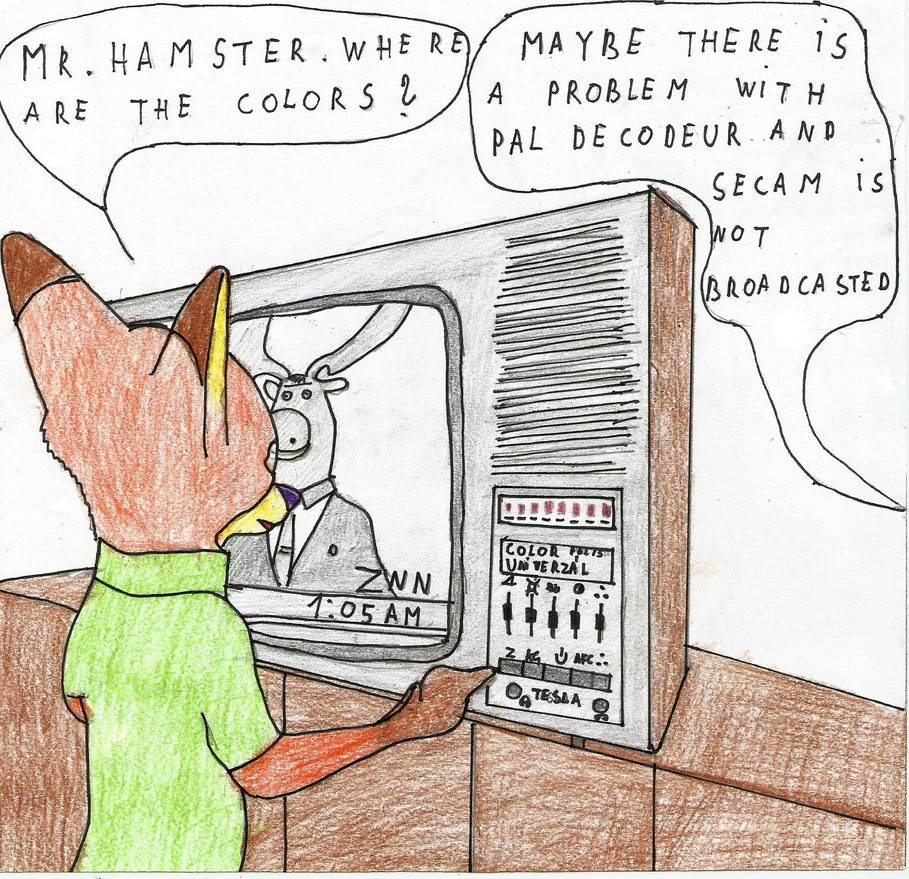 MR. HAMSTER. WHERE
ARE THE COLORS?
MAYBE THERE IS
A PROBLEM WITH
PAL DECODEUR AND
SECAM IS
NOT
BROADCASTED
ZNN
1:05 AM
COLOR
UNIVERZÁL
AFC
TESLA